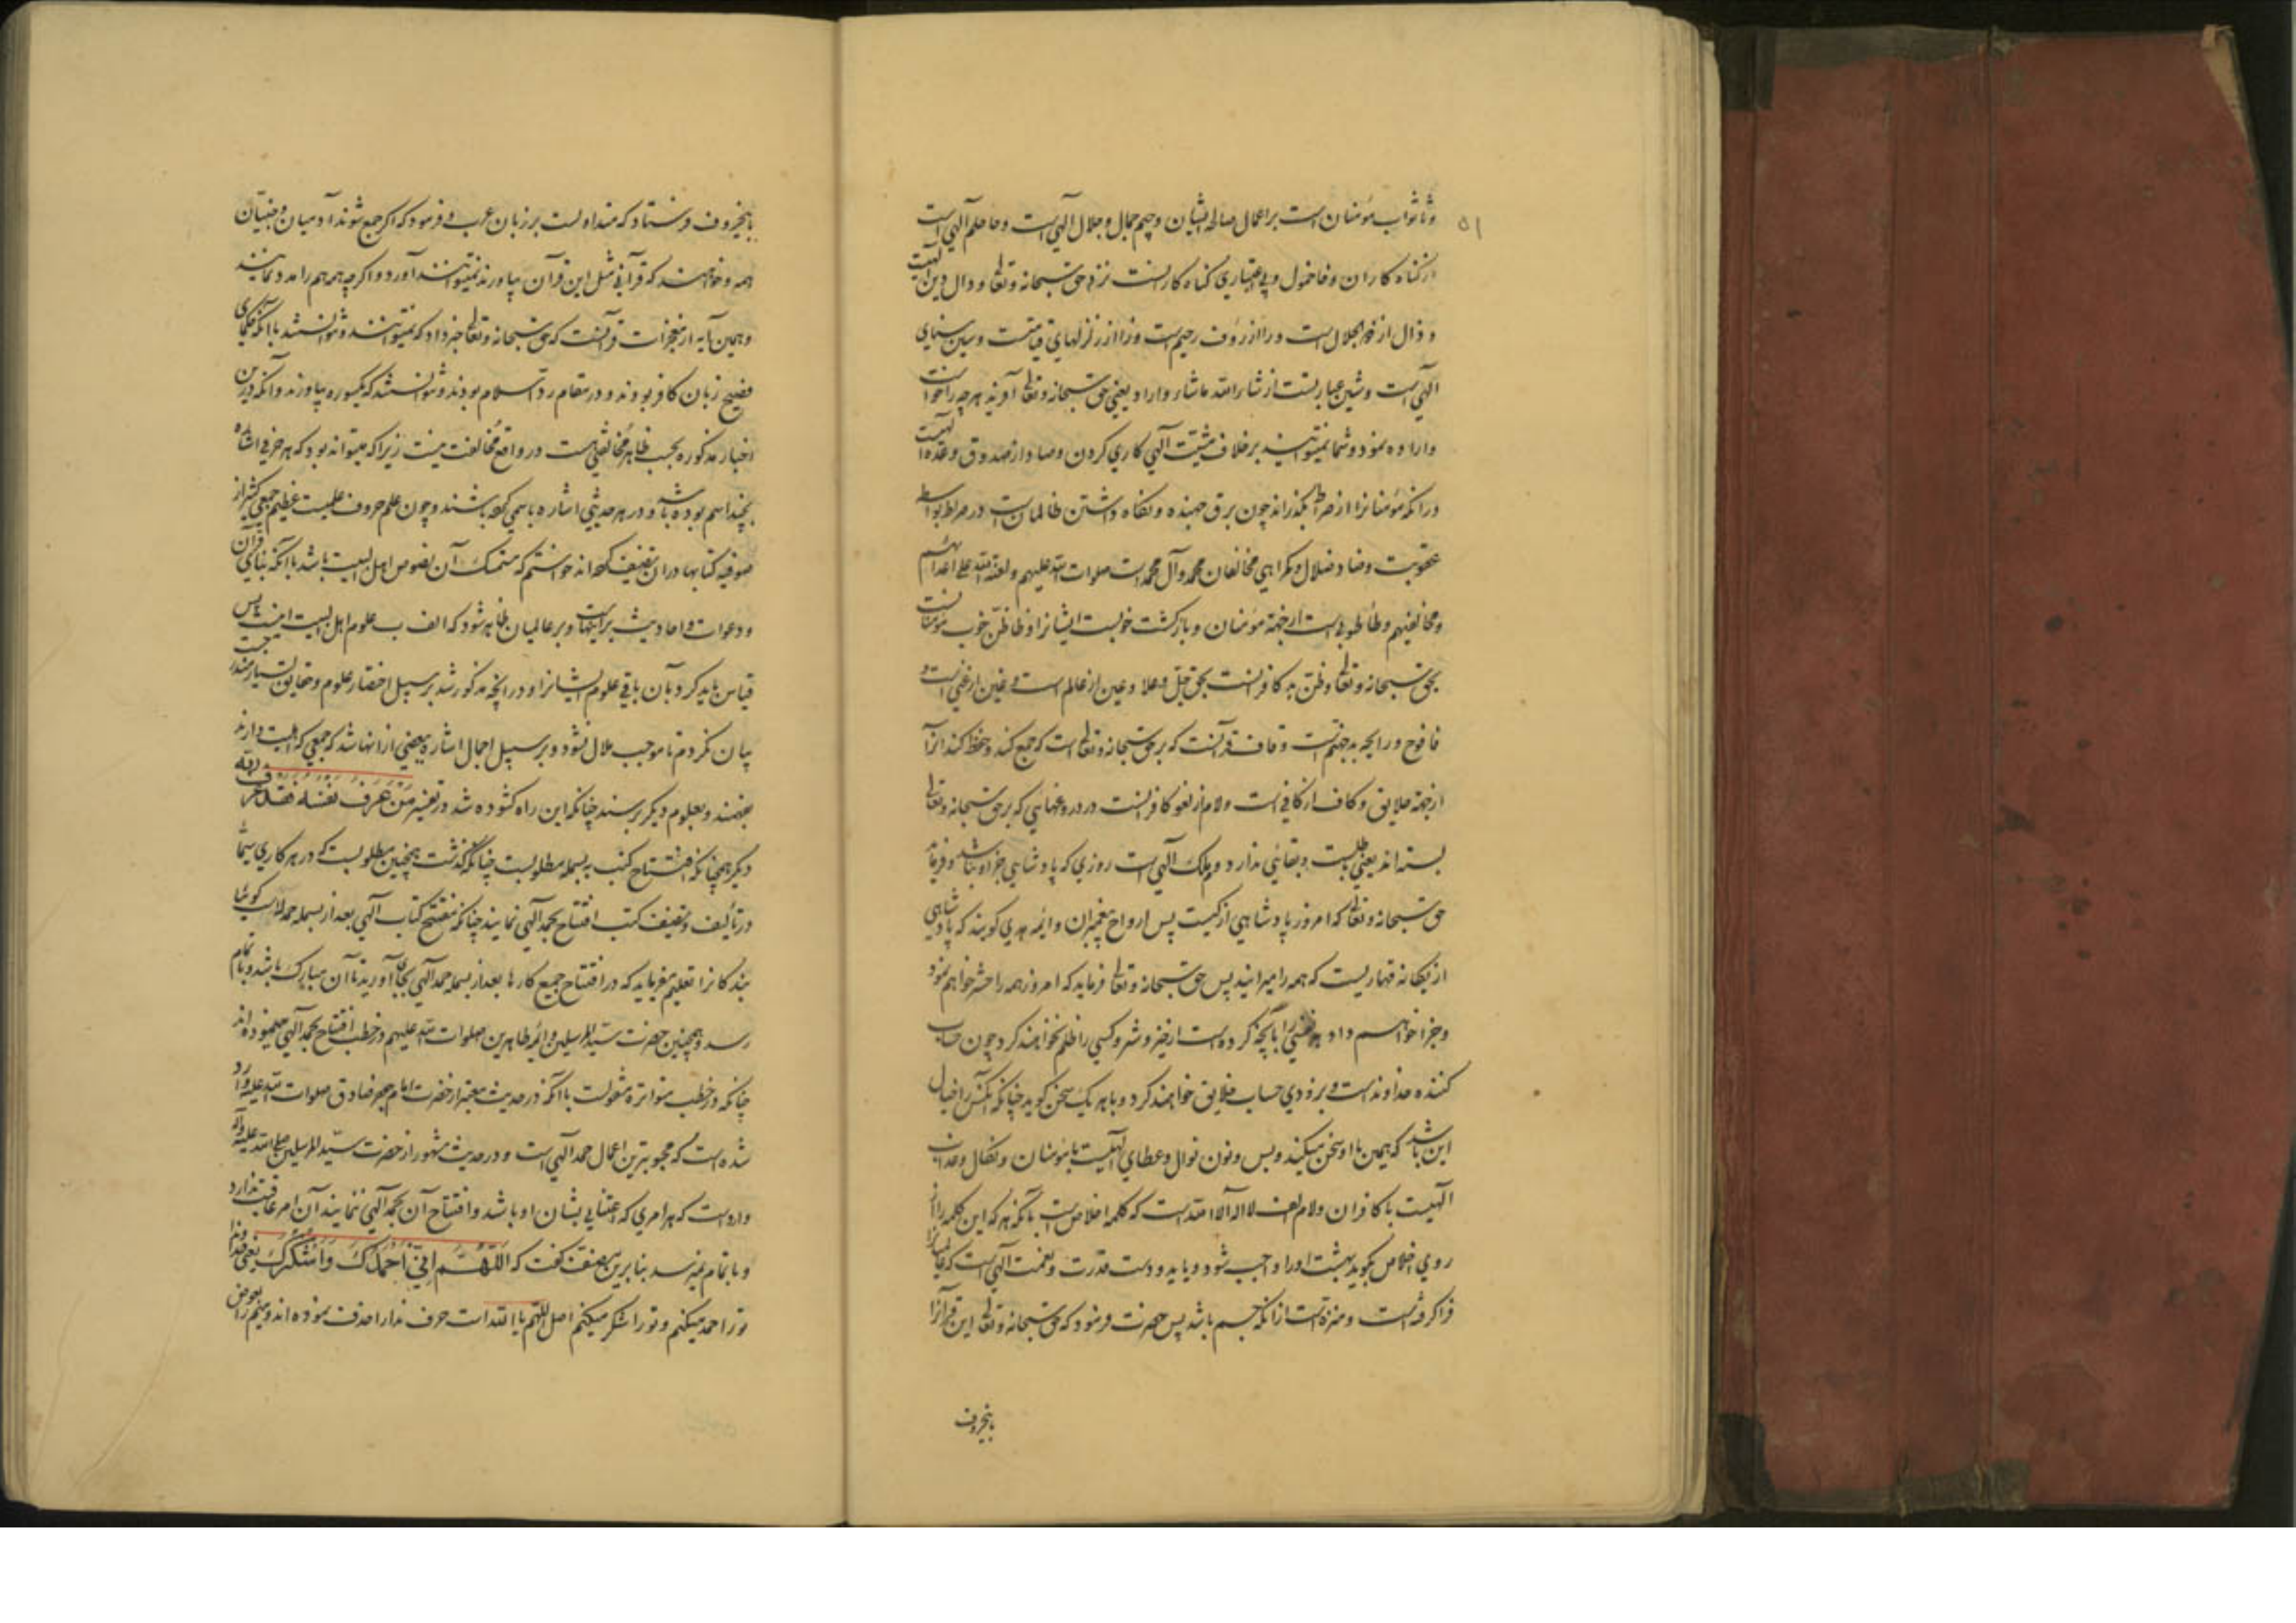 ۵۱
و ثا ثواب مؤمنان است بر اعمال صالحه ایشان و جیم جمال و جلال آلهی است و حا حلم آلهی است
از گناه کاران و خا خمول و بی اعتباری گناه کارانست نزد حق سبحانه و تعالی و دال دین آلهیست
و ذال از ذو الجلال است و را از رؤف رحیم است و زا از زلزلهای قیامتست و سین سنای
آلهی است و شین عبارتست از شاء الله ما شاء و اراد یعنی حق سبحانه و تعالی آفرید هر چه را خواست
و اراده نمود و شما نمیتوانید بر خلاف مشیّت آلهی کاری کردن و صاد از صدوق وعده آلهیست
در آنکه مؤمنانرا از صراط بگذراند چون برق جهنده و نگاه داشتن ظالمان است در صراط بواسطه
عقوبت و ضاد ضلال و گمراهی مخالفان محمد و آل محمد است صلوات الله علیهم و لعنة الله علی اعدائهم
و مخالفیهم و طا طوبی است از جهة مؤمنان و بازگشت خوبست ایشانرا و ظا ظن خوب مؤمنانست
بحق سبحانه و تعالی و ظن بد کافرانست بحق جل و علا و عین از عالم است و غین از غنی است و
فا فوح و رایحه بد جهنم است و قاف قرآنست که بر حق سبحانه و تعالی است که جمع کند و حفظ کند آنرا
از جهة خلایق و کاف از کافی است و لام از لغو کافرانست در دروغهایی که بر حق سبحانه و تعالی
بسته‌اند یعنی باطلست و بقائی ندارد و میم ملک آلهی است روزی که پادشاهی جز او نباشد و فرماید
حق سبحانه و تعالی که امروز پادشاهی از کیست پس ارواح پیغمبران و ائمه هدی گویند که پادشاهی
از یگانه قهاریست که همه را میرانید پس حق سبحانه و تعالی فرماید که امروز همه را حشر خواهم نمود
و جزا خواهم داد هر نفسی را بآنچه کرده است از خیر و شر و کسی را ظلم نخواهند کرد چون حساب
کننده خداوند است و بزودی حساب خلایق خواهند کرد و با هر یک سخن گوید چنانکه آنکس را خیال
این باشد که همین با او سخن میکند و بس و نون نوال و عطای آلهیست با مؤمنان و نکال و عذاب
آلهیست با کافران و لام الف لا اله الا الله است که کلمه اخلاص است با آنکه هر که این کلمه را از
روی اخلاص بگوید بهشت او را واجب شود و یا ید و دست قدرت و نعمت آلهی است که عالمیانرا
فرا گرفته است و منزه است از آنکه جسم باشد پس حضرت فرمود که حق سبحانه و تعالی این قرآنرا
باینحروف
باینحروف فرستاد که متداولست بر زبان عرب و فرمود که اگر جمع شوند آدمیان و جنیّان
همه و خواهند که قرآنی مثل این قرآن بیاورند نمیتوانند آورد و اگر چه همه هم را مدد نمایند
و همین آیه از معجزات قرآنست که حق سبحانه و تعالی خبر داد که نمیتوانند و نتوانستند با آنکه حکمای
فصیح زبان کافر بودند و در مقام رد اسلام بودند و نتوانستند که یکسوره بیاورند و آنکه درین
اخبار مذکوره بحسب ظاهر مخالفتی هست در واقع مخالفت نیست زیرا که میتواند بود که هر حرفی اشاره
بچند اسم بوده باشد و در هر حدیثی اشاره باسمی کرده باشند و چون علم حروف علمیست عظیم جمعی کثیر از
صوفیه کتابها در ان تصنیف کرده‌اند خواستم که متمسک آن نصوص اهل البیت باشد با آنکه بنای قرآن
و دعوات و احادیث بر اینهاست و بر عالمیان ظاهر شود که الف ب علوم اهل البیت اینست پس
قیاس باید کرد بآن باقی علوم ایشانرا و در آنچه مذکور شد بر سبیل اختصار علوم و حقایق بسیار مندرجست
بیان نکردم تا موجب ملال نشود و بر سبیل اجمال اشاره ببعضی از انها شد که جمعی که اهلیت دارند
بفهمند و بعلوم دیگر برسند چنانکه این راه گشوده شد در تفسیر مَنْ عَرَفَ نَفْسَهُ فَقَدْ عَرَفَ رَبَّهُ
دیگر همچنانکه افتتاح کتب به بسمله مطلوبست چنانکه گذشت همچنین مطلوبست که در هر کاری سیّما
در تألیف و تصنیف کتب افتتاح بحمد آلهی نمایند چنانکه مفتتح کتاب آلهی بعد از بسمله حمد است گوئیا
بندکانرا تعلیم میفرماید که در افتتاح جمیع کارها بعد از بسمله حمد آلهی بجای آورید تا آن مبارک باشد و باتمام
رسد و همچنین حضرت سیّد المرسلین و ائمه طاهرین صلوات الله علیهم در خطب افتتاح بحمد آلهی مینموده‌اند
چنانکه در خطب متواتره منقولست با آنکه در حدیث معتبر از حضرت امام جعفر صادق صلوات الله علیه وارد
شده است که محبوبترین اعمال حمد آلهی است و در حدیث مشهور از حضرت سیّد المرسلین صلی الله علیه وآله
وارد است که هر امری که اعتنایی بشان او باشد و افتتاح آن بحمد آلهی ننمایند آن امر عاقبت ندارد
و باتمام نمیرسد بنابرین مصنف گفت که اَللّهُمَّ اِنّی اَحْمَدُکَ وَ اَشْکُرُکَ یعنی خداوندا
تو را حمد میکنم و تو را شکر میکنم اصل اللّهم یا الله است حرف ندا را حذف نموده‌اند و میم را بعوض